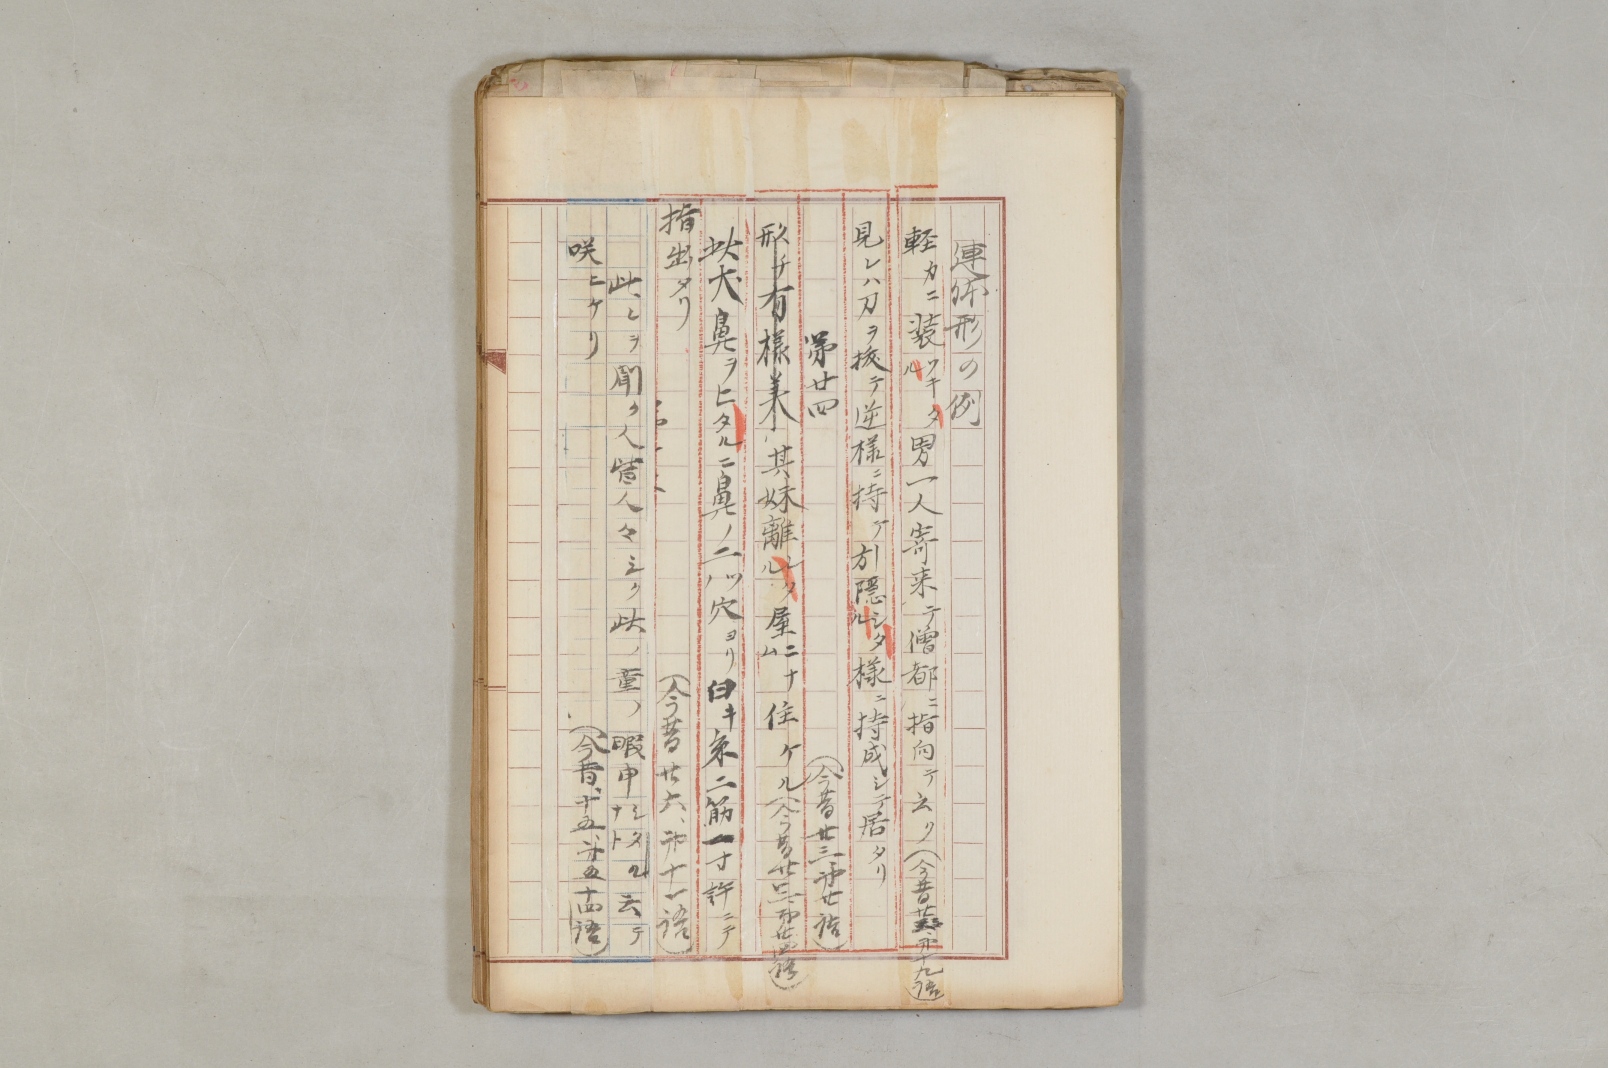 連体形の例
軽カニ装ツキタル男一人寄来テ僧都ニ指向テ云ク(今昔廿 第十九語)
見レハ刀ヲ抜テ逆様ニ持テ引隠シタル様ニ持成シテ居タリ
第廿四 (今昔廿三第廿語)
形チ有様美 其妹離レタル屋ニナム住ケル(今昔廿三第廿四語)
此犬鼻ヲヒタルニ鼻ノ二ツノ穴ヨリ白キ糸二筋一寸許ニテ
指出タリ (今昔廿六、第十一語)
此レヲ聞ク人皆人々シク此ノ童ノ暇申シタルナト云テ
咲ヒケリ (今昔 十五、第五十四語)